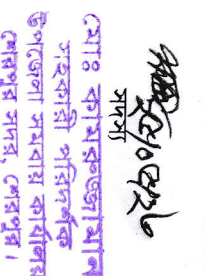 সদস্য
মোঃ কামরুজ্জামান
সহকারী পরিদর্শক
উপজেলা সমবায় কার্যালয়
শেরপুর সদর, শেরপুর।